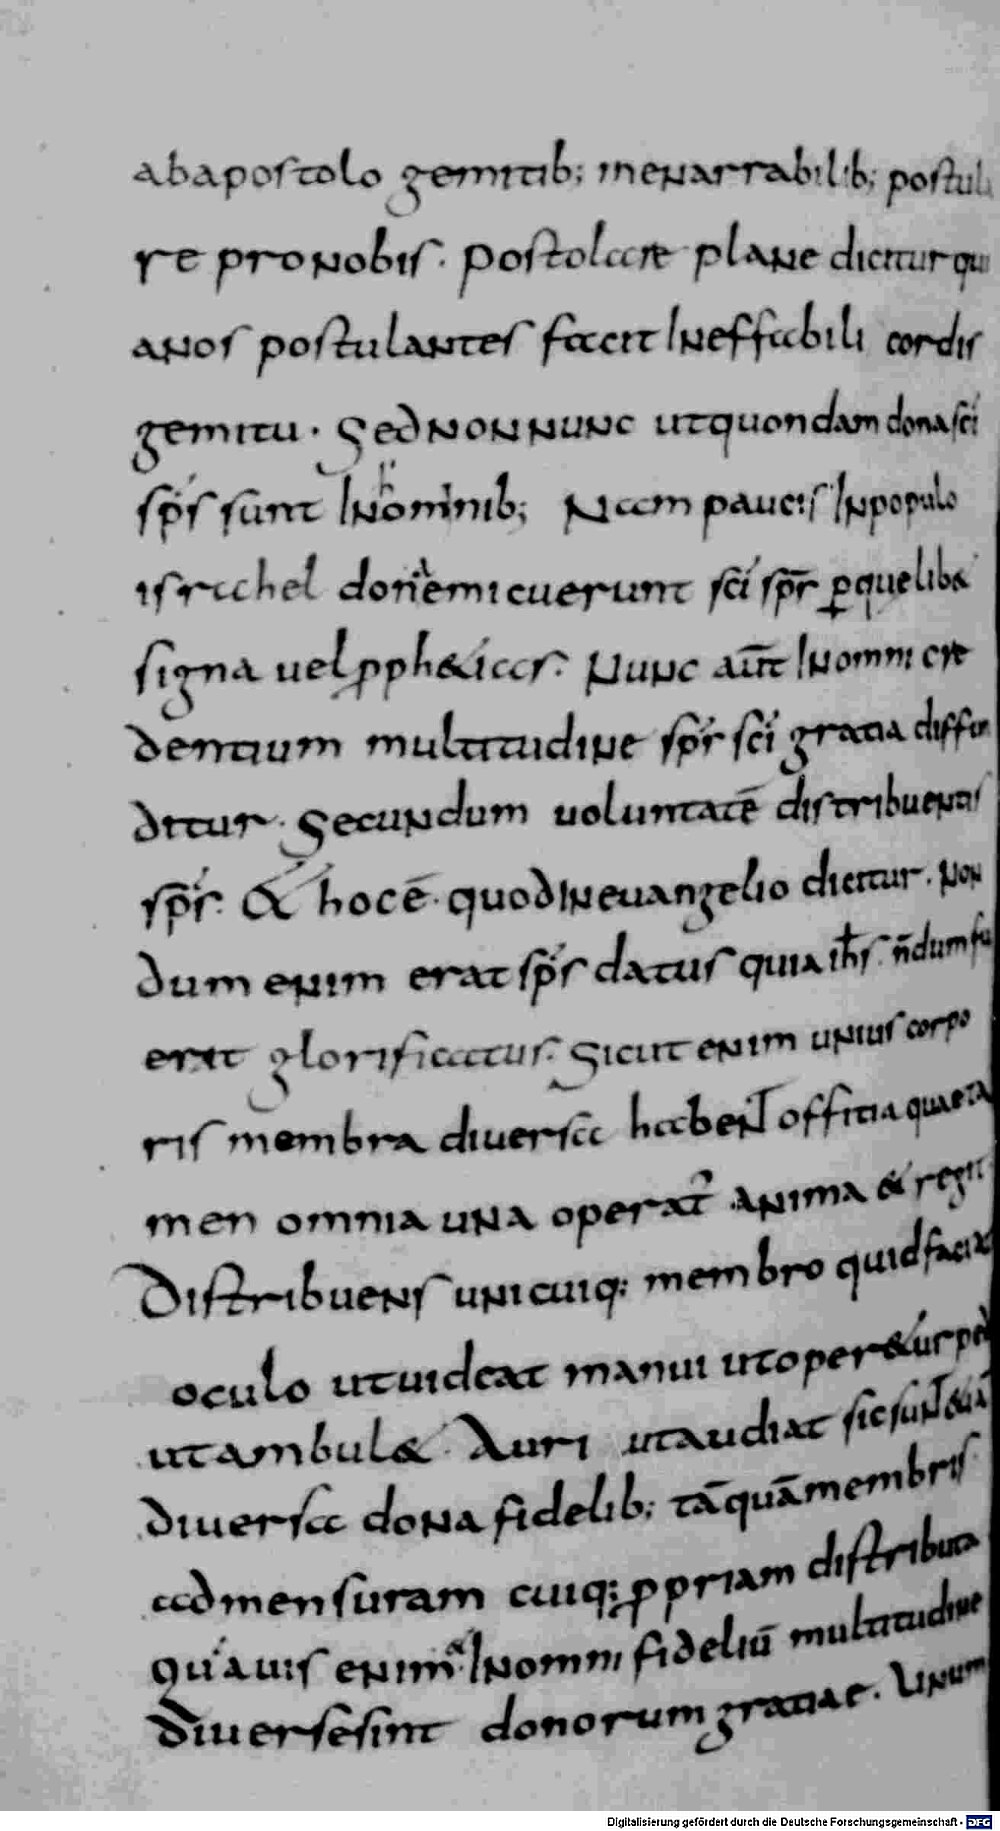 abapostolo gemitib; inenarrabilib; postula
re pronobis. postolare plane dicitur qui
anos postulantes facit Ineffabili cordis
gemitu. Sednonnunc utquondam dona sc̄i
sp̄s sunt Inhominib; Nam paucis Inpopulo
israhel donaemicuerunt sc̄i sp̄s ꝑquelib&
signa uelꝓph&ias. Nunc aut̄ Inomni cre
dentium multitudine sp̄s sc̄i gratia diffun
ditur. Secundum uoluntatē distribuentis
sp̄s. & hocē. quodInevangelio dicitur. Non
dum enim erat sp̄s datus quia ih̄s. n̄dum fu
erat glorificatus. Sicut enim unius corpo
ris membra diversa habent officia quaeta
men omnia una operat̄ anima & regit
Distribuens unicuiq; membro quid faciat
oculo utuideat manui utoper&ur ped
utambul&. Auri utaudiat sic sunt &iā
diuersa dona fidelib; tāquāmembris
admensuram cuiq; ꝓpriam distributa
quāuis enim Inomni fideliū multitudine
diuersesint donorum gratiae. Unum
Digitalisierung gefördert durch die Deutsche Forschungsgemeinschaft - DFG